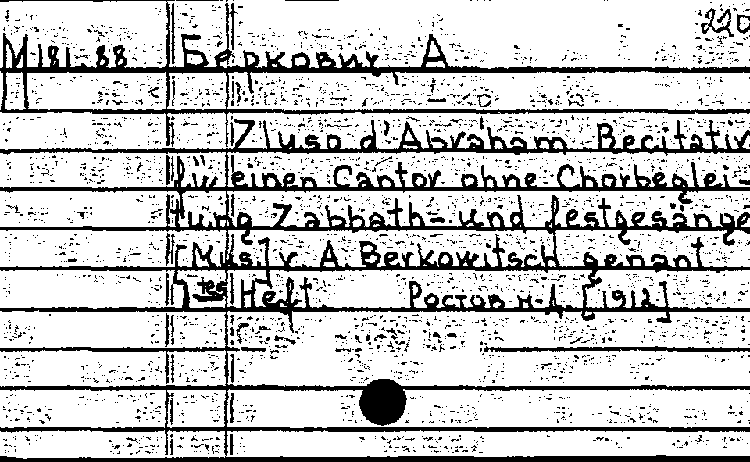 220
M 181-88 Беркович, А
Zluso d'Abraham Recitativ
für einen Cantor ohne Chorbeglei-
tung Zabbath= und festgesänge
[Mus] v. A. Berkowitsch genant
1tes Heft. Ростов н-Д. [1912]